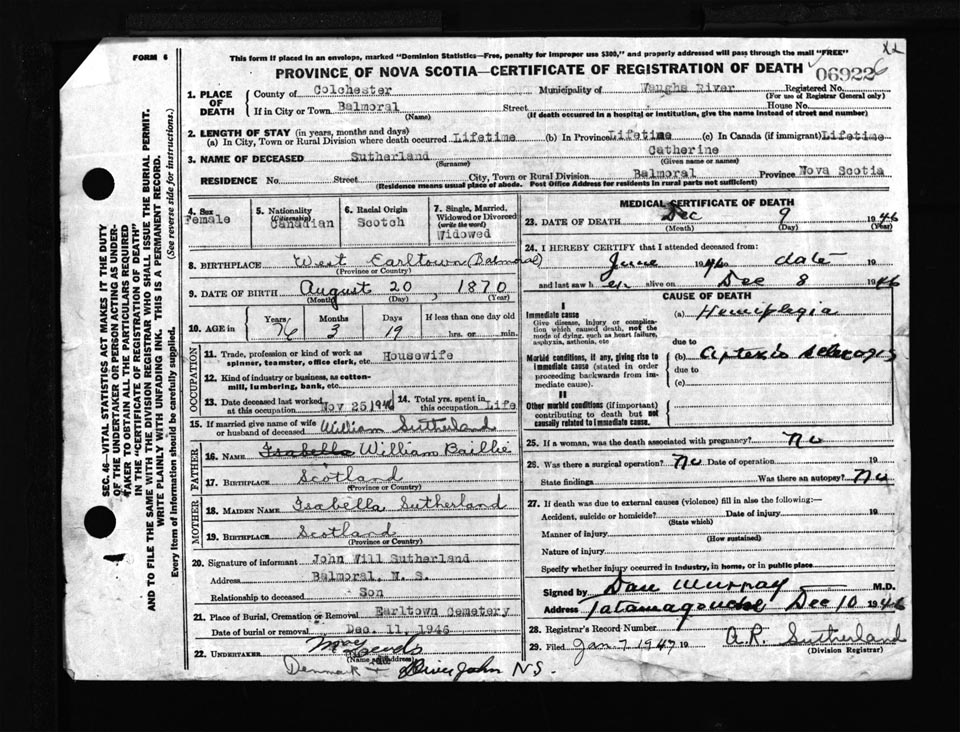 This form if placed in an envelope, marked "Dominion Statistics—Free, penalty for improper use $300," and properly addressed will pass through the mail "FREE"
FORM 6
PROVINCE OF NOVA SCOTIA—CERTIFICATE OF REGISTRATION OF DEATH
06922
SEC. 46—VITAL STATISTICS ACT MAKES IT THE DUTY
OF THE UNDERTAKER OR PERSON ACTING AS UNDER-
TAKER TO OBTAIN ALL THE PARTICULARS REQUIRED
IN THE "CERTIFICATE OF REGISTRATION OF DEATH"
AND TO FILE THE SAME WITH THE DIVISION REGISTRAR WHO SHALL ISSUE THE BURIAL PERMIT.
WRITE PLAINLY WITH UNFADING INK. THIS IS A PERMANENT RECORD.
Every item of Information should be carefully supplied. (See reverse side for instructions.)
1. PLACE OF DEATH
County of Colchester Municipality of Vaughs River Registered No.
(For use of Registrar General only)
If in City or Town Balmoral Street House No.
(Name) (If death occurred in a hospital or institution, give the name instead of street and number)
2. LENGTH OF STAY (in years, months and days)
(a) In City, Town or Rural Division where death occurred Lifetime (b) In Province Lifetime (c) In Canada (if immigrant) Lifetime
3. NAME OF DECEASED Sutherland Catherine
(Surname) (Given name or names)
RESIDENCE No. Street City, Town or Rural Division Balmoral Province Nova Scotia
(Residence means usual place of abode. Post Office Address for residents in rural parts not sufficient)
4. Sex Female
5. Nationality (Citizenship) Canadian
6. Racial Origin Scotch
7. Single, Married, Widowed or Divorced (write the word) Widowed
8. BIRTHPLACE West Earltown (Balmoral)
(Province or Country)
9. DATE OF BIRTH August 20, 1870
(Month) (Day) (Year)
10. AGE in Years 76 Months 3 Days 19 If less than one day old hrs. or min.
OCCUPATION
11. Trade, profession or kind of work as spinner, teamster, office clerk, etc. Housewife
12. Kind of industry or business, as cotton-mill, lumbering, bank, etc.
13. Date deceased last worked at this occupation Nov 25 1946
14. Total yrs. spent in this occupation Life
15. If married give name of wife or husband of deceased William Sutherland
FATHER
16. NAME Isabella William Baillie
17. BIRTHPLACE Scotland
MOTHER
18. MAIDEN NAME Isabella Sutherland
19. BIRTHPLACE Scotland
(Province or Country)
20. Signature of informant John Will Sutherland
Address Balmoral, N. S.
Relationship to deceased Son
21. Place of Burial, Cremation or Removal Earltown Cemetery
Date of burial or removal Dec. 11, 1946
22. UNDERTAKER
(Name and address)
Denmark + River John N.S.
MEDICAL CERTIFICATE OF DEATH
23. DATE OF DEATH Dec 9 1946
(Month) (Day) (Year)
24. I HEREBY CERTIFY that I attended deceased from:
June 1946 to date 19
and last saw her alive on Dec 8 1946
CAUSE OF DEATH
I
Immediate cause
Give disease, injury or complication which caused death, not the mode of dying, such as heart failure, asphyxia, asthenia, etc
(a) Hemiplegia
due to
Morbid conditions, if any, giving rise to immediate cause (stated in order proceeding backwards from immediate cause).
(b)
due to
(c)
II
Other morbid conditions (if important) contributing to death but not causally related to immediate cause.
25. If a woman, was the death associated with pregnancy? No
26. Was there a surgical operation? No Date of operation 19
State findings Was there an autopsy? No
27. If death was due to external causes (violence) fill in also the following:—
Accident, suicide or homicide? Date of injury 19
(State which)
Manner of injury
(How sustained)
Nature of injury
Specify whether injury occurred in industry, in home, or in public place
Signed by Dan Murray M.D.
Address Tatamagouche Dec 10 1946
28. Registrar's Record Number
29. Filed Jan 7 1947 19 A.R. Sutherland
(Division Registrar)